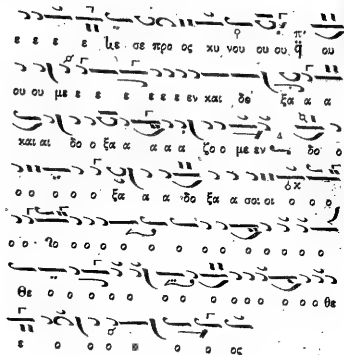 ε ε ε ε κε σε προ ος κυ νου ου ου ου
ου ου με ε ε ε ε ε ε εν και δο ξα α α
και αι δο ο ξα α α α α ζο ο με εν δο ο
ο ο ο ο ο ξα α α δο ξα α σοι οι ο ο ο
ο ο το ο ο ο ο ο ο ο ο ο ο
θε ο ο ο ο ο ο ο ο ο ο ο ο ο ο θε
ε ο ο ο ο ο ο ος